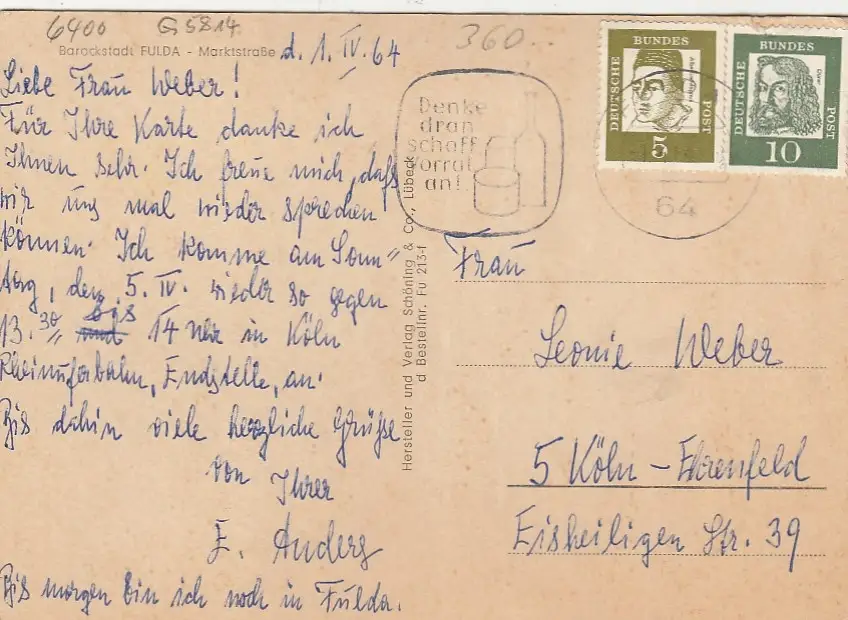 6400 G 5814
360..
Barockstadt FULDA - Marktstraße
d. 1. IV. 64
Liebe Frau Weber!
Für Ihre Karte danke ich
Ihnen sehr. Ich freue mich, daß
wir uns mal wieder sprechen
können. Ich komme am Sonn"
tag, den 5. IV. wieder so gegen
13.30 bis 14 Uhr in Köln
Rheinuferbahn, Endstelle, an.
Bis dahin viele herzliche Grüße
von Ihrer
E. Anders
Bis morgen bin ich noch in Fulda.
Hersteller und Verlag Schöning & Co., Lübeck
d Bestellnr. Fu 213-f
Denke
dran
schaff
Vorrat
an!
64
DEUTSCHE
BUNDES
POST
5
DEUTSCHE
BUNDES
POST
Dürer
10
Frau
Leonie Weber
5 Köln - Ehrenfeld
Eisheiligen Str. 39